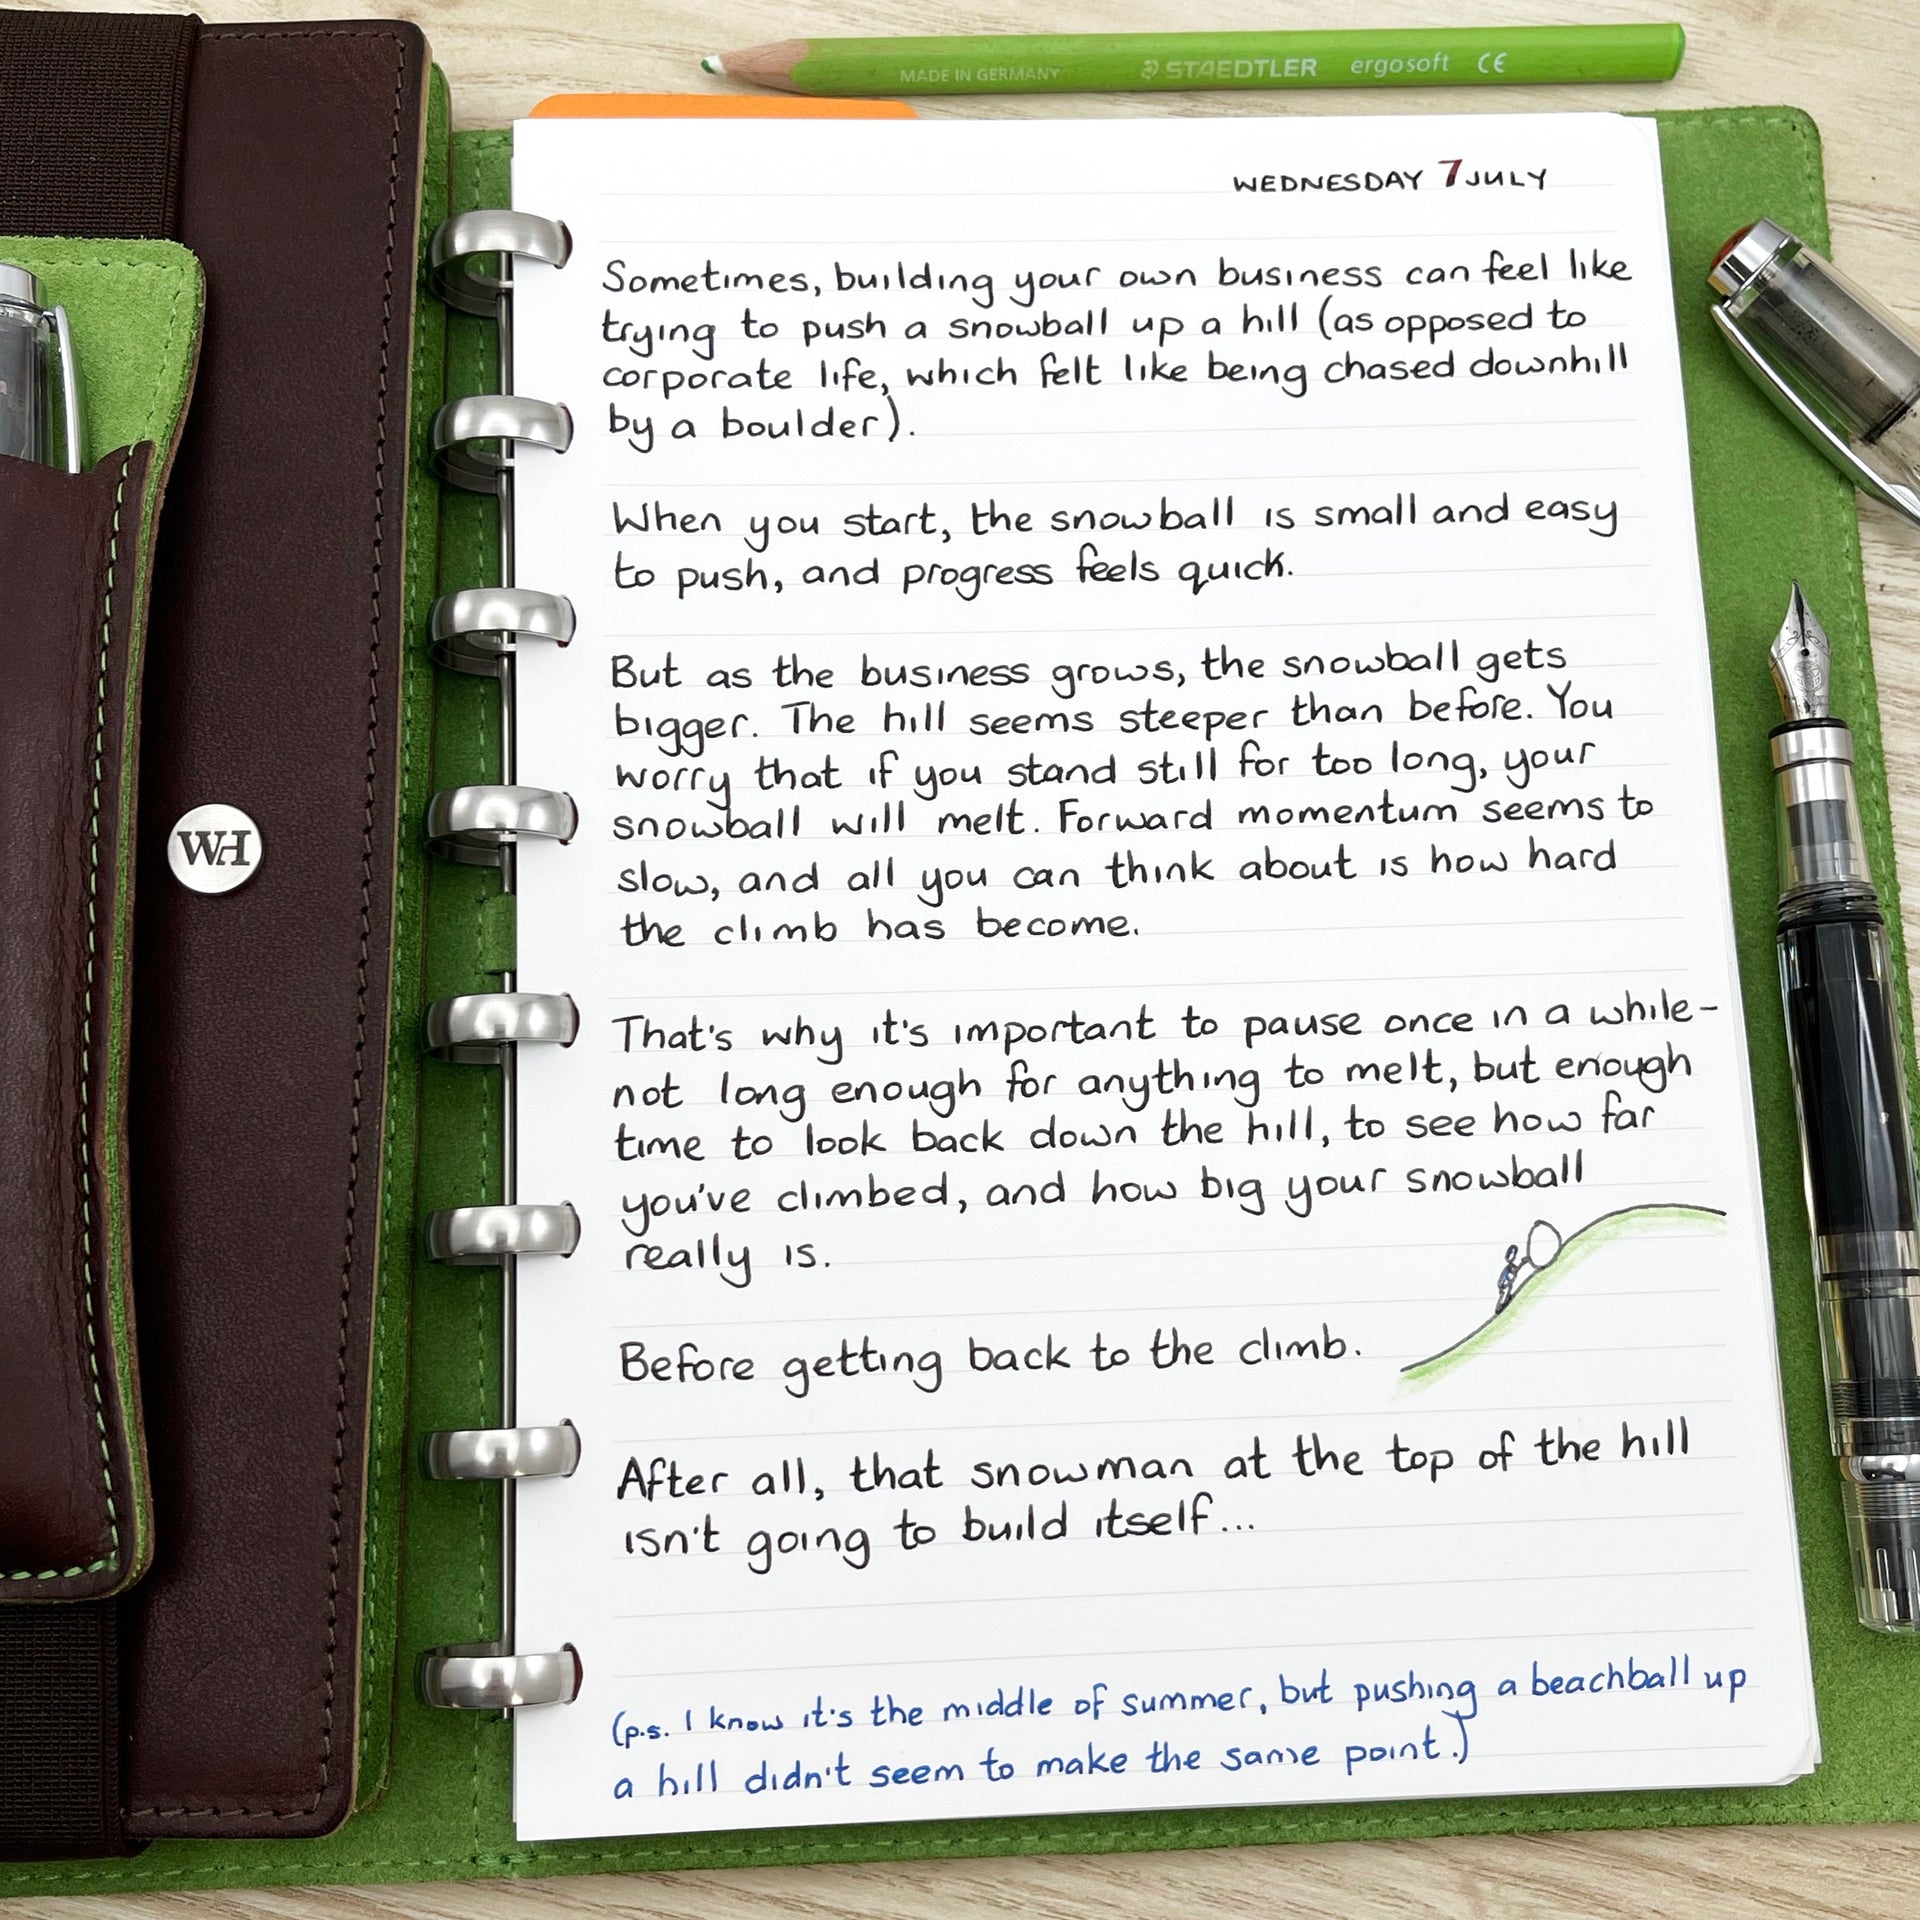 MADE IN GERMANY STAEDTLER ergosoft CE
WEDNESDAY 7 JULY
Sometimes, building your own business can feel like
trying to push a snowball up a hill (as opposed to
corporate life, which felt like being chased downhill
by a boulder).
When you start, the snowball is small and easy
to push, and progress feels quick.
But as the business grows, the snowball gets
bigger. The hill seems steeper than before. You
worry that if you stand still for too long, your
snowball will melt. Forward momentum seems to
slow, and all you can think about is how hard
the climb has become.
That's why it's important to pause once in a while-
not long enough for anything to melt, but enough
time to look back down the hill, to see how far
you've climbed, and how big your snowball
really is.
Before getting back to the climb.
After all, that snowman at the top of the hill
isn't going to build itself...
(p.s. I know it's the middle of summer, but pushing a beachball up
a hill didn't seem to make the same point.)
WH